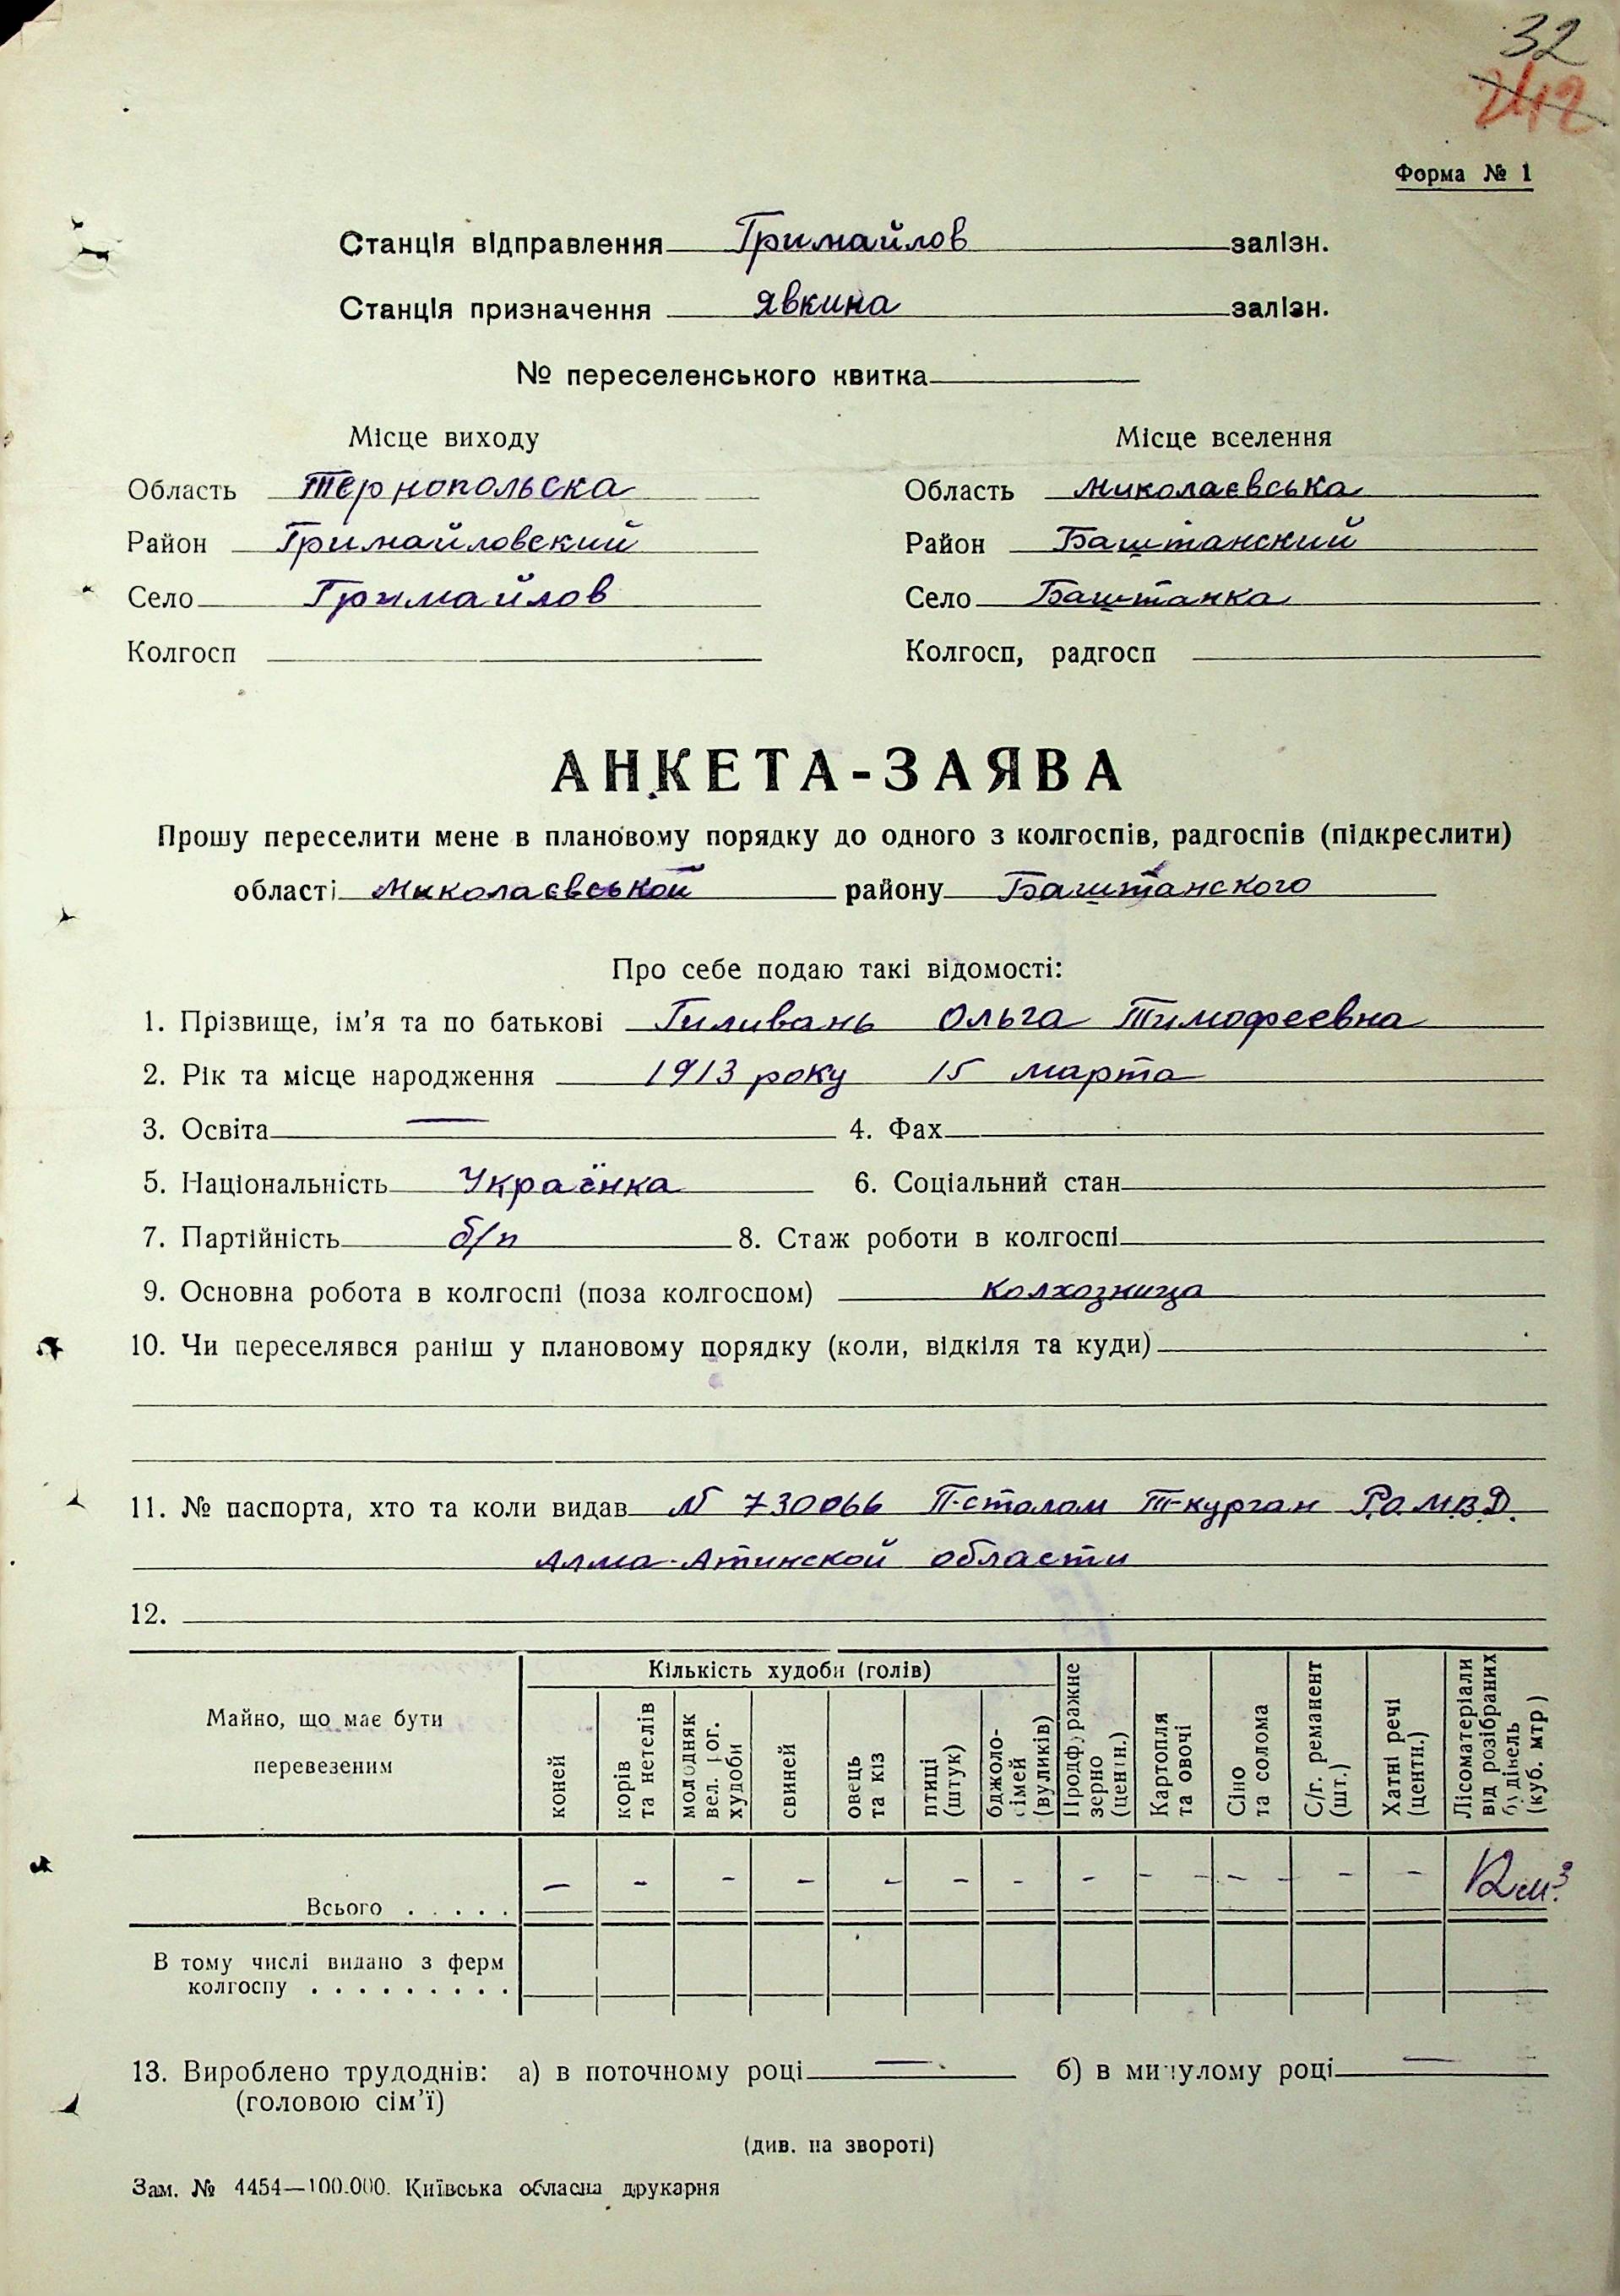 32
242
Форма № 1
Станція відправлення Гримайлов залізн.
Станція призначення Явкина залізн.
№ переселенського квитка
Місце виходу Місце вселення
Область Тернопольска Область Миколаєвська
Район Гримайловский Район Баштанский
Село Гримайлов Село Баштанка
Колгосп Колгосп, радгосп
АНКЕТА-ЗАЯВА
Прошу переселити мене в плановому порядку до одного з колгоспів, радгоспів (підкреслити)
області Миколаєвської району Баштанского
Про себе подаю такі відомості:
1. Прізвище, ім'я та по батькові Гиливань Ольга Тимофеевна
2. Рік та місце народження 1913 року 15 марта
3. Освіта — 4. Фах
5. Національність Українка 6. Соціальний стан
7. Партійність б/п 8. Стаж роботи в колгоспі
9. Основна робота в колгоспі (поза колгоспом) колхозница
10. Чи переселявся раніш у плановому порядку (коли, відкіля та куди)
11. № паспорта, хто та коли видав № 730066 Т-курган Р.О.М.В.Д.
Алма-Атинской области
12.
Майно, що має бути перевезеним
Кількість худоби (голів)
коней
корів та нетелів
молодняк вел. рог. худоби
свиней
овець та кіз
птиці (штук)
бджоло-сімей (вуликів)
Продфуражне зерно (центн.)
Картопля та овочі
Сіно та солома
С/г. реманент (шт.)
Хатні речі (центн.)
Лісоматеріали від розібраних будівель (куб. мтр.)
Всього . . . . . – – – – – – – – – – – – – – 12 м³
В тому числі видано з ферм
колгоспу . . . . . . . . .
13. Вироблено трудоднів: а) в поточному році — б) в минулому році —
(головою сім'ї)
(див. на звороті)
Зам. № 4454—100.000. Київська обласна друкарня